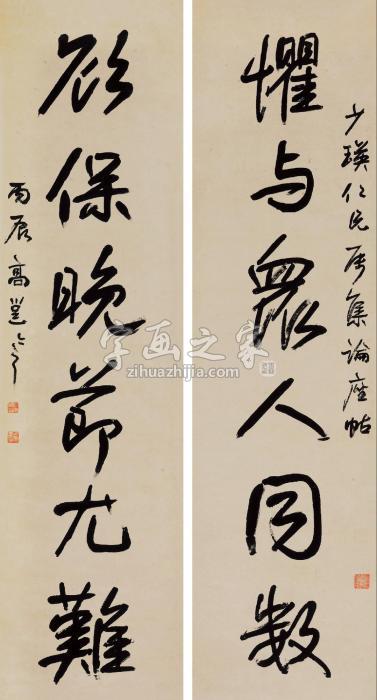 少瑛仁兄属集論座帖
懼与眾人同数
欲保晚莭尤難
丙辰高邕
字画之家
zihuazhijia.com